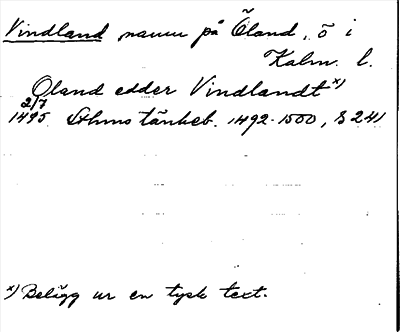 Vindland namn på Öland, ö i
Kalm. l.
Oland edder Vindlandt x)
2/7
1495 Sthms tänkeb. 1492-1500, S 241
x) Belägg ur en tysk text.